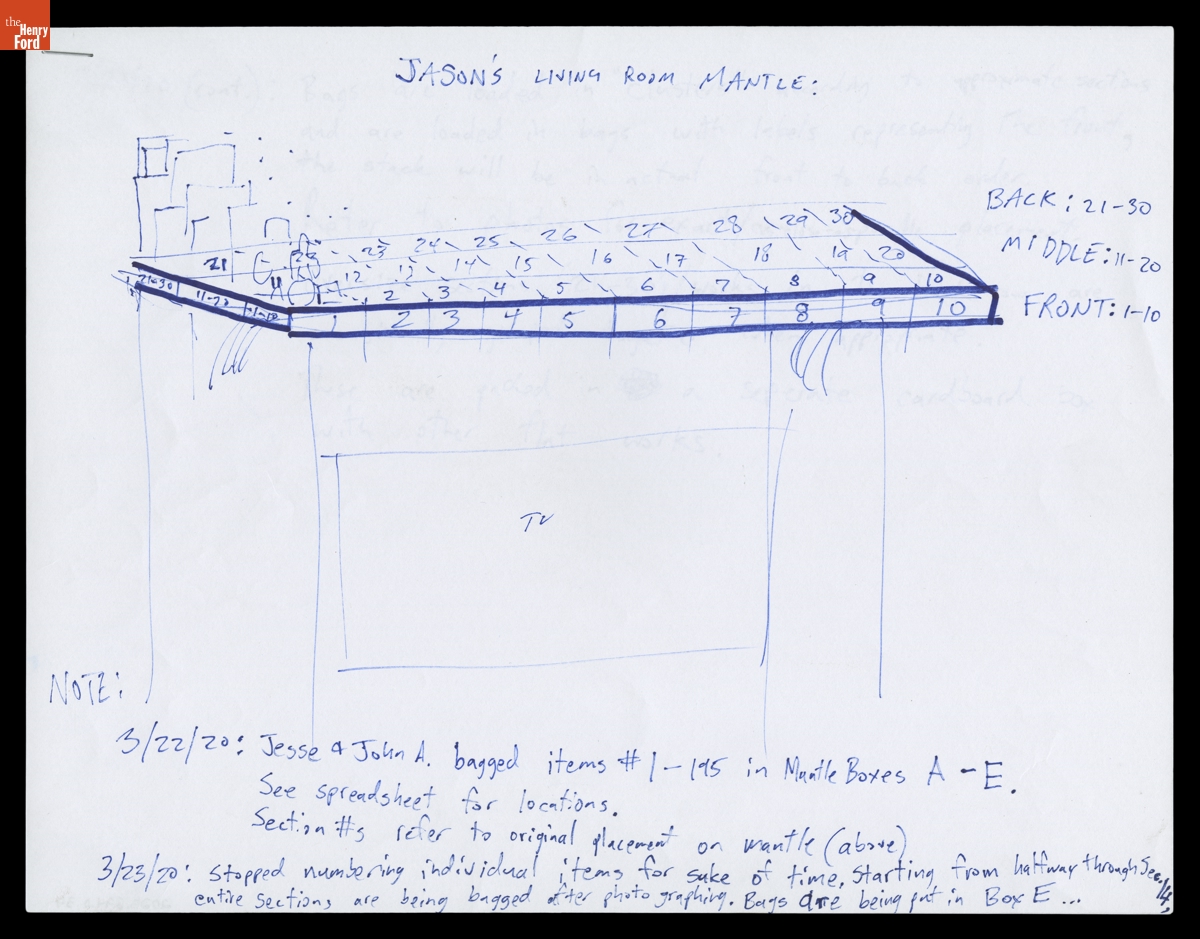 the
Henry
Ford
JASON'S LIVING ROOM MANTLE:
BACK: 21-30
MIDDLE: 11-20
FRONT: 1-10
21 22 23 24 25 26 27 28 29 30
11 12 13 14 15 16 17 18 19 20
2 3 4 5 6 7 8 9 10
21-30 11-20 1-10
1 2 3 4 5 6 7 8 9 10
TV
NOTE:
3/22/20: Jesse & John A. bagged items #1-195 in Mantle Boxes A-E.
See spreadsheet for locations.
Section #s refer to original placement on mantle (above)
3/23/20: Stopped numbering individual items for sake of time. Starting from halfway through Sec. 14,
entire sections are being bagged after photographing. Bags are being put in Box E ...